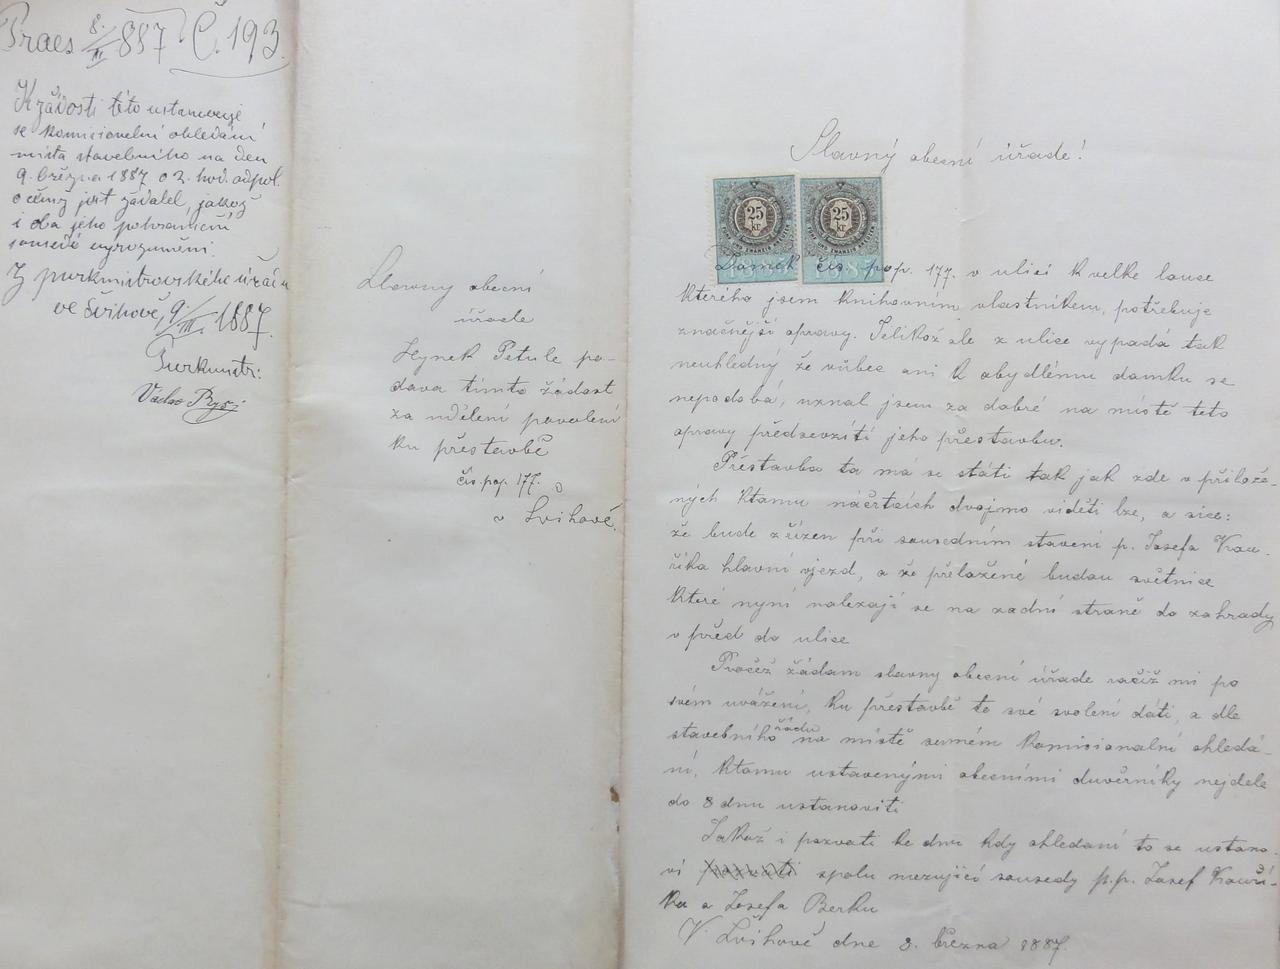 Praes 8./III 887 Č. 193.
K žádosti této ustanovuje
se komisionelní ohledání
místa stavebního na den
9. března 1887 o 2. hod. odpol.
o čemž jest žadatel, jakož
i dva jeho pohraniční
sousedé vyrozuměni.
Z purkmistrovského úřadu
ve Švihově, 9./III. 1887.
Purkmistr:
Václav
Slavny obecní
úřade
Hynek Petule po-
dava tímto žádost
za udělení povolení
ku přestavbě
čís. pop. 177.
v Švihově.
Slavný obecní úřade!
25 kr
25 kr
Domek čís. pop. 177. v ulici k velke louce
kterého jsem knihovním vlastníkem, potřebuje
značnější opravy. Jelikož ale z ulice vypadá tak
neuhledný že vůbec ani k obydlému domku se
nepodobá, uznal jsem za dobré na místě této
opravy předsevzíti jeho přestavbu.
Přestavba ta má se státi tak jak zde v přilože-
ných ktomu náčrtcích dvojmo viděti lze, a sice:
že bude zřízen při sousedním stavení p. Josefa Kou-
říka hlavní vjezd, a že přeložené budou světnice
které nyní nalezají se na zadní straně do zahrady
v před do ulice
Pročež žádám slavny obecní úřade račiž mi po
svém uvážení, ku přestavbě té své svolení dáti, a dle
stavebního řádu na místě samém komisionalní ohledá-
ní, ktomu ustavenými obecními duvěrníky nejdele
do 8 dnu ustanoviti
Jakož i pozvati ke dnu kdy ohledaní to se ustano-
ví spolu mezujicí sousedy p.p. Josef Kouří-
ka a Josefa Berku
V Švihově dne 8. března 1887.